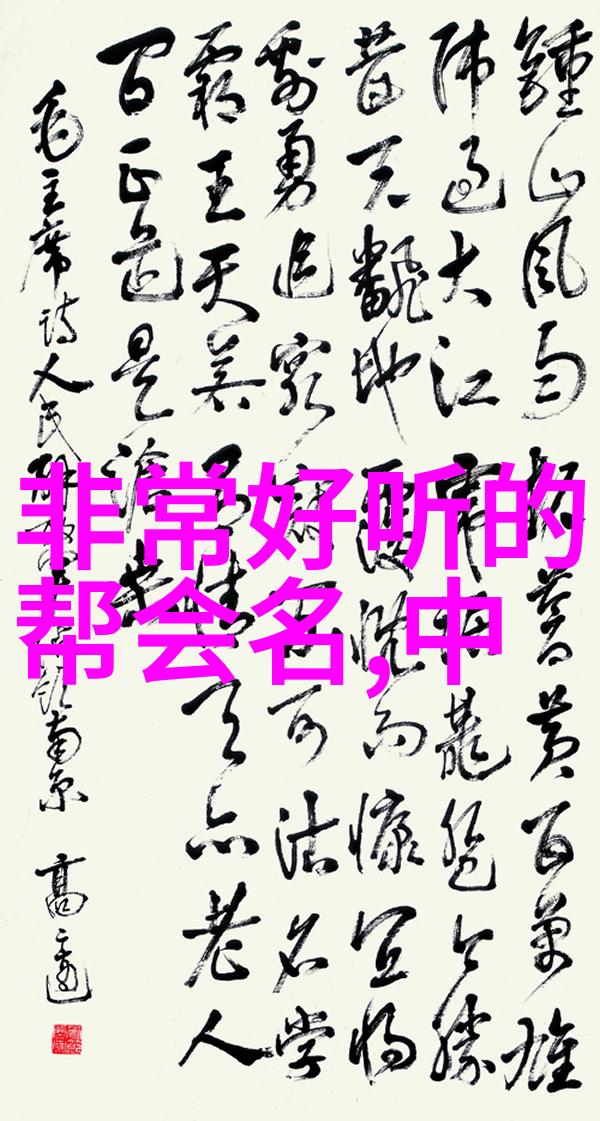 鍾山风雨起苍黄百万雄
师过大江虎踞龍盘今胜
昔天飜地覆慨而慷宜将
剩勇追穷寇不可沽名学
霸王天若有情天亦老人
间正道是沧桑
毛主席诗人民解放军占领南京 高
非常好听的
帮会名,中